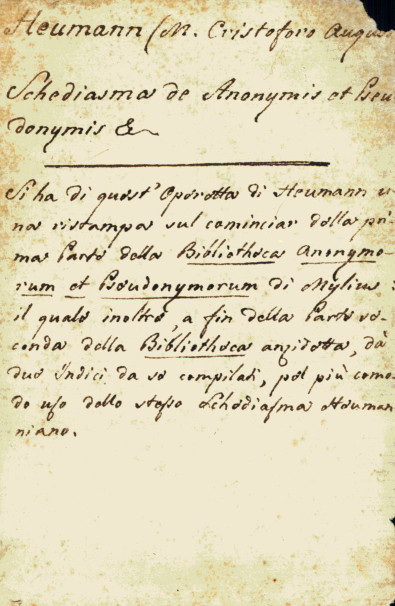 Heumann (M. Cristoforo Augus
Schediasma de Anonymis et Pseu
donymis &
Si ha di quest' Operetta di Heumann u
na ristampa sul cominciar della pri
ma Parte della Bibliotheca Anonymo-
rum et Pseudonymorum di Mylius:
il quale inoltre, a fin della Parte se-
conda della Bibliotheca anzidetta, dà
due Indici da se compilati, pel più como-
do uso dello stesso Schediasma Heuman
niano.